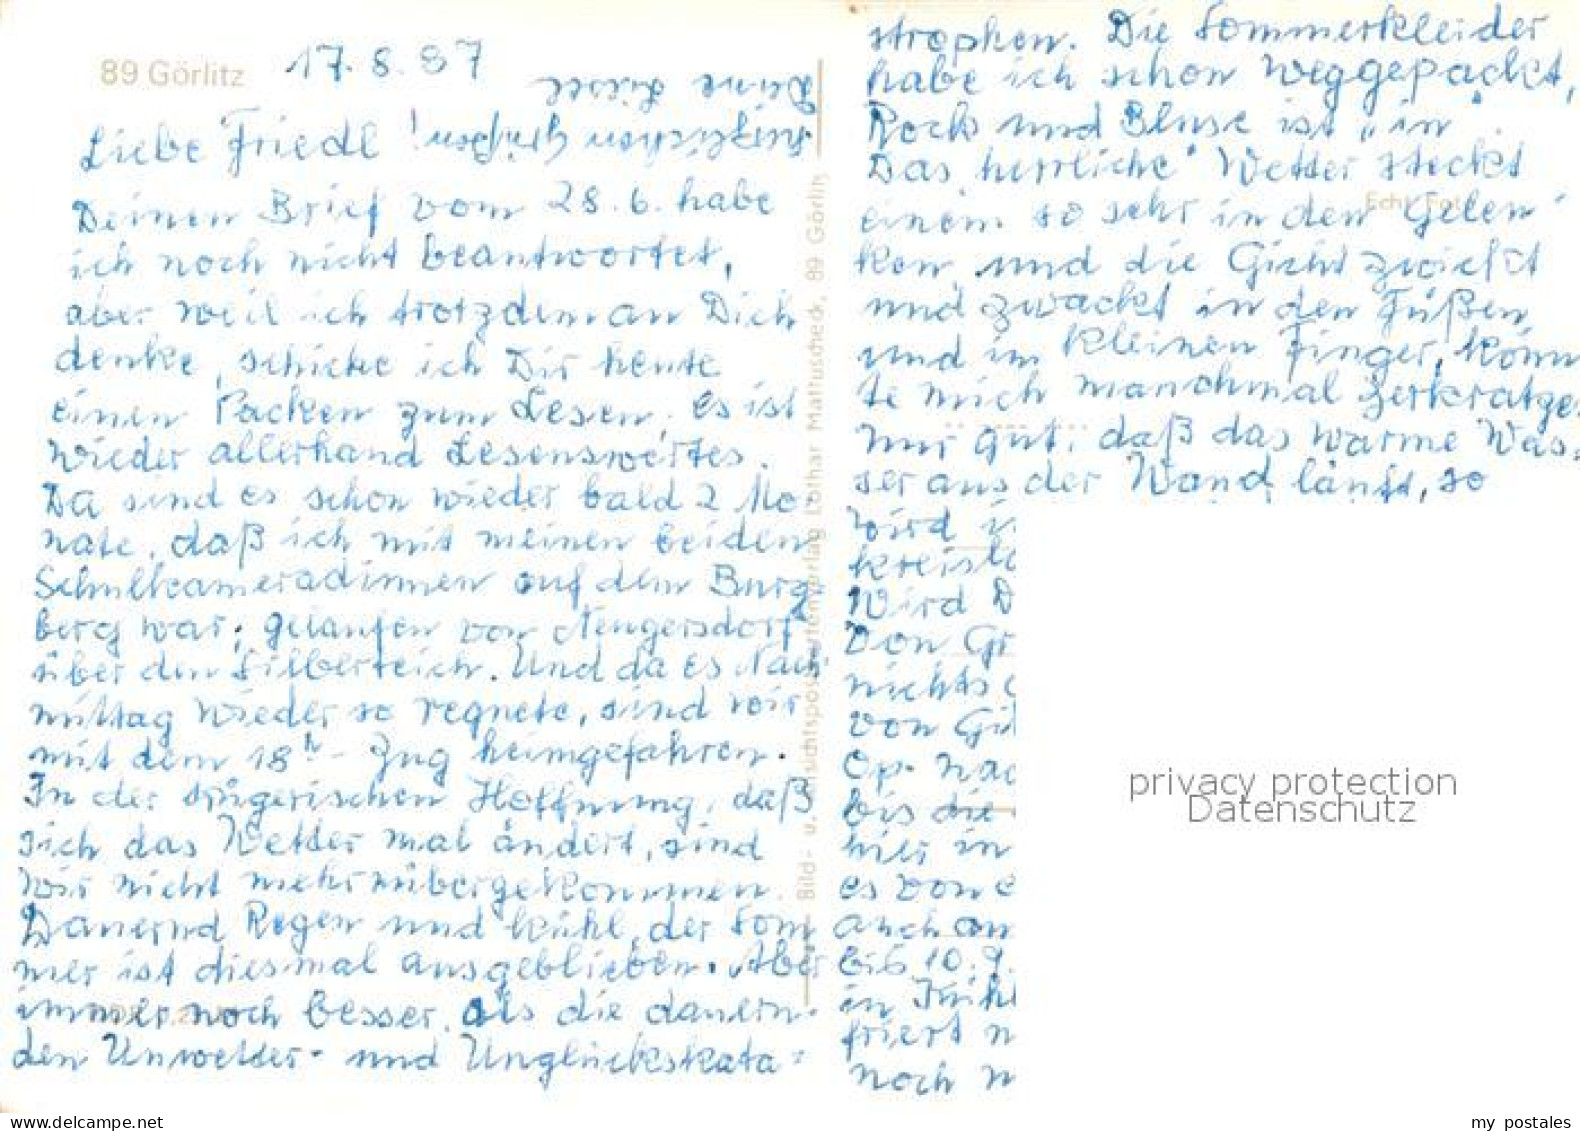 89 Görlitz
17.8.87
Liebe Friedl!
Deinen Brief vom 28.6. habe
ich noch nicht beantwortet,
aber weil ich trotzdem an Dich
denke, schicke ich Dir heute
einen Packen zum Lesen. Es ist
wieder allerhand Lesenswertes.
Da sind es schon wieder bald 2 Mo
nate, daß ich mit meinen beiden
Schulkameradinnen auf dem Burg
berg war, gelaufen von Neugersdorf
über den Silberteich. Und da es Nach
mittag wieder so regnete, sind wir
mit dem 18h-Zug heimgefahren.
In der trügerischen Hoffnung, daß
sich das Wetter mal ändert, sind
wir nicht mehr nübergekommen.
Dauernd Regen und kühl, der Som
mer ist diesmal ausgeblieben. Aber
immer noch besser, als die dauern-
den Unwetter- und Unglückskata-
strophen. Die Sommerkleider
habe ich schon weggepackt,
Rock und Bluse ist "in".
Das "herrliche" Wetter steckt
einem so sehr in den Gelen-
ken und die Gicht zwickt
und zwackt in den Füßen
und im kleinen Finger, könn
te mich manchmal zerkratze
nur gut, daß das warme Was-
ser aus der Wand läuft, so
wird i
kreisl
Wird D
Von Gr
nichts
von Gü
Op. nac
bis die
hier in
es von
auch an
bis 10.9.
in Kühl
friert n
noch
Herzlichen Grüßen
Deine Liesel
Echt Foto
Bild- u. Ansichtspostkartenverlag Lothar Mattuscheck, 89 Görlitz
privacy protection
Datenschutz
www.delcampe.net
my postales